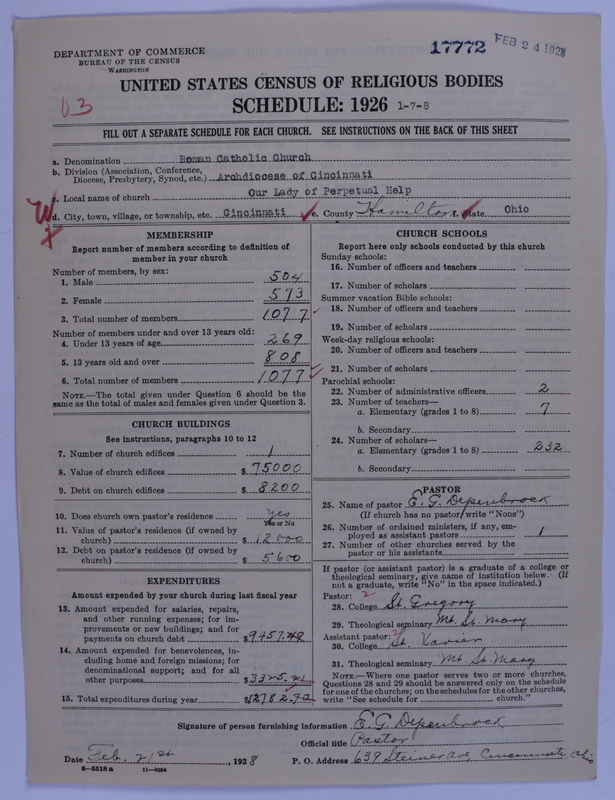 DEPARTMENT OF COMMERCE
BUREAU OF THE CENSUS
WASHINGTON
17772
FEB 24 1928
UNITED STATES CENSUS OF RELIGIOUS BODIES
SCHEDULE: 1926 1-7-8
FILL OUT A SEPARATE SCHEDULE FOR EACH CHURCH. SEE INSTRUCTIONS ON THE BACK OF THIS SHEET
a. Denomination Roman Catholic Church
b. Division (Association, Conference, Diocese, Presbytery, Synod, etc.) Archdiocese of Cincinnati
c. Local name of church Our Lady of Perpetual Help
d. City, town, village, or township, etc. Cincinnati e. County Hamilton f. State Ohio
MEMBERSHIP
Report number of members according to definition of
member in your church
Number of members, by sex:
1. Male 504
2. Female 573
3. Total number of members 1077
Number of members under and over 13 years old:
4. Under 13 years of age 269
5. 13 years old and over 808
6. Total number of members 1077
NOTE.—The total given under Question 6 should be
same as the total of males and females given under Question 3.
CHURCH BUILDINGS
See instructions, paragraphs 10 to 12
7. Number of church edifices 1
8. Value of church edifices $ 75000
9. Debt on church edifices $ 8200
10. Does church own pastor's residence? yes
Yes or No
11. Value of pastor's residence (if owned by
church) $ 12000
12. Debt on pastor's residence (if owned by
church) $ 5600
EXPENDITURES
Amount expended by your church during last fiscal year
13. Amount expended for salaries, repairs,
and other running expenses; for im-
provements or new buildings; and for
payments on church debt $ 9457.48
14. Amount expended for benevolences, in-
cluding home and foreign missions; for
denominational support; and for all
other purposes $
15. Total expenditures during year $
CHURCH SCHOOLS
Report here only schools conducted by this church
Sunday schools:
16. Number of officers and teachers
17. Number of scholars
Summer vacation Bible schools:
18. Number of officers and teachers
19. Number of scholars
Week-day religious schools:
20. Number of officers and teachers
21. Number of scholars
Parochial schools:
22. Number of administrative officers 2
23. Number of teachers—
a. Elementary (grades 1 to 8) 7
b. Secondary
24. Number of scholars—
a. Elementary (grades 1 to 8) 232
b. Secondary
PASTOR
25. Name of pastor E. G. Depenbrock
(If church has no pastor write "None")
26. Number of ordained ministers, if any, em-
ployed as assistant pastors 1
27. Number of other churches served by the
pastor or his assistants
If pastor (or assistant pastor) is a graduate of a college or
theological seminary, give name of institution below. (If
not a graduate, write "No" in the space indicated.)
Pastor:
28. College St. Gregory
29. Theological seminary Mt. St. Mary
Assistant pastor:
30. College St. Xavier
31. Theological seminary Mt. St. Mary
NOTE.—Where one pastor serves two or more churches,
Questions 28 and 29 should be answered only on the schedule
for one of the churches; on the schedules for the other churches,
write "See schedule for church."
Signature of person furnishing information E. G. Depenbrock
Official title Pastor
Date Feb. 21st, 1928 P. O. Address 639 Steiner Ave, Cincinnati, Ohio
6—5518 a 11—9054